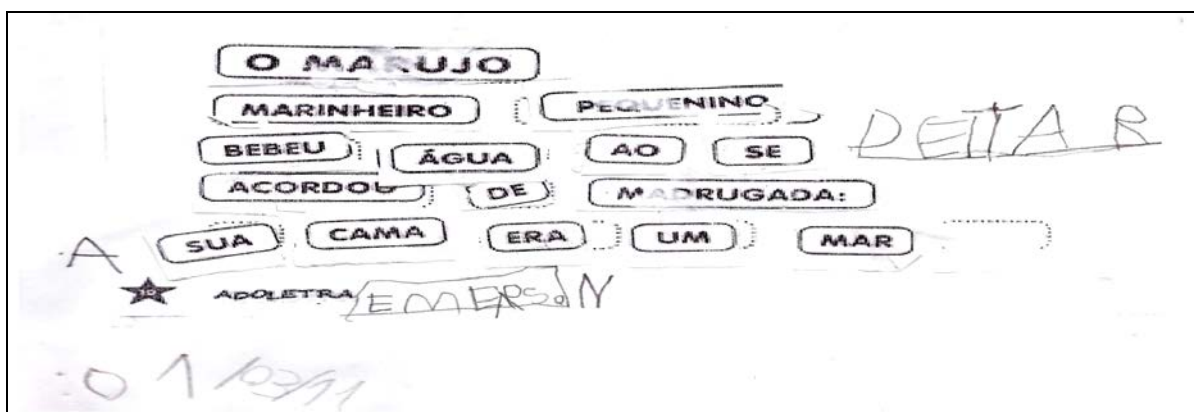 O MARUJO
MARINHEIRO PEQUENINO
BEBEU ÁGUA AO SE DEITAR
ACORDOU DE MADRUGADA:
A SUA CAMA ERA UM MAR
ADOLETRA EMERSON
01/03/11